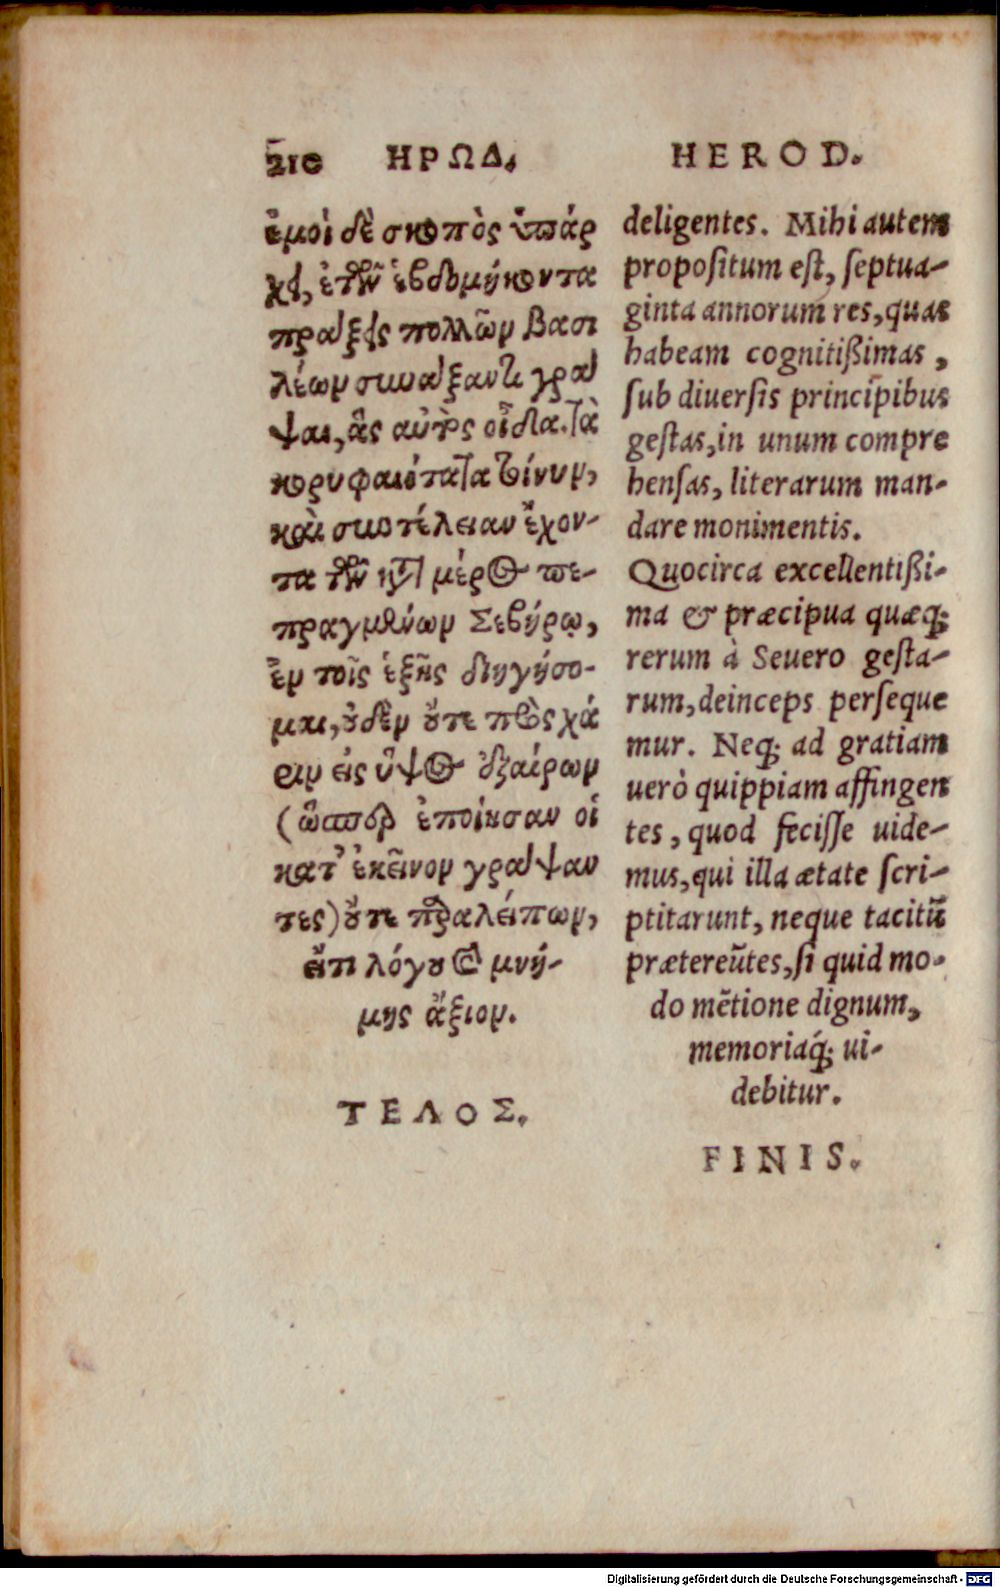 210 ΗΡΩΔ.
ἐμοὶ δὲ σκοπὸς ὑπάρ
χει, ἐτῶν ἑβδομήκοντα
πράξεις πολλῶν βασι
λέων συντάξαντι γρά
ψαι, ἃς αὐτὸς οἶδα. τὰ
κορυφαιότατα τοίνυν,
καὶ συντέλειαν ἔχον-
τα τῶν κατὰ μέρος πε-
πραγμένων Σεβήρῳ,
ἐν τοῖς ἑξῆς διηγήσο-
μαι, οὐδὲν οὔτε πρὸς χά
ριν εἰς ὕψος ἐξαίρων
(ὥσπερ ἐποίησαν οἱ
κατ' ἐκεῖνον γράψαν
τες) οὔτε παραλείπων,
εἴτι λόγου καὶ μνή-
μης ἄξιον.
ΤΕΛΟΣ.
HEROD.
deligentes. Mihi autem
propositum est, septua-
ginta annorum res, quas
habeam cognitißimas,
sub diuersis principibus
gestas, in unum compre
hensas, literarum man-
dare monimentis.
Quocirca excellentißi-
ma & præcipua quæq;
rerum à Seuero gesta-
rum, deinceps perseque
mur. Neq; ad gratiam
uerò quippiam affingen
tes, quod fecisse uide-
mus, qui illa ætate scri-
ptitarunt, neque tacitũ
prætereũtes, si quid mo-
do mẽtione dignum,
memoriaq́; ui-
debitur.
FINIS.
Digitalisierung gefördert durch die Deutsche Forschungsgemeinschaft - DFG